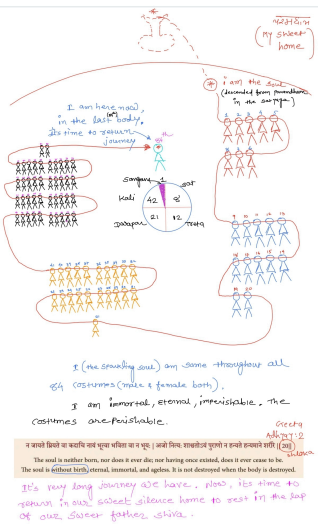 परमधाम
(My sweet home)
i am the soul
(descended from paramdham
in the satyuga)
I am here now,
in the last body.
it's time to return
journey
84th
1 2 3 4 5
6 7 8
Sangam 1
Kali Sat
42 8
21 12
Dwapar Treta
9 10 11 12 13
14 15 16 17 18
19 20
I (the sparkling soul) am same throughout all
84 costumes (male & female both).
I am immortal, eternal, imperishable. The
costumes are perishable.
Geeta
Adhyay:2
shlova
न जायते म्रियते वा कदाचि नायं भूत्वा भविता वा न भूयः | अजो नित्यः शाश्वतोऽयं पुराणो न हन्यते हन्यमाने शरीरे || 20||
The soul is neither born, nor does it ever die; nor having once existed, does it ever cease to be.
The soul is without birth, eternal, immortal, and ageless. It is not destroyed when the body is destroyed.
It's very long journey we have. Now, its time to
return in our sweet silence home to rest in the lap
of our sweet father shiva.